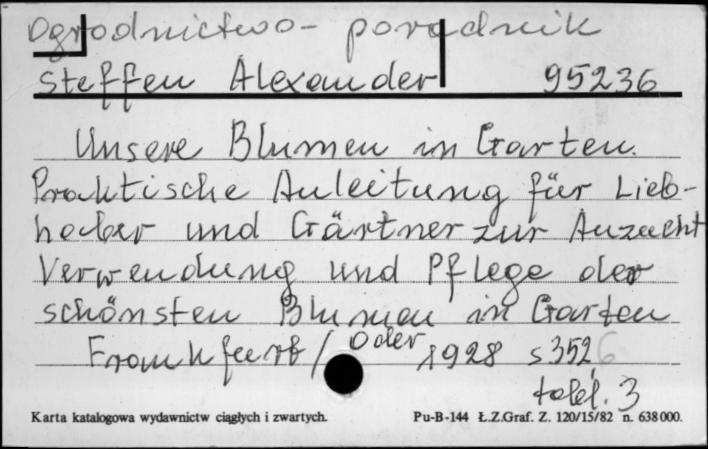 Ogrodnictwo - poradnik
Steffen Alexander 95236
Unsere Blumen in Garten.
Praktische Anleitung für Lieb-
haber und Gärtner zur Anzucht
Verwendung und Pflege der
schönsten Blumen in Garten
Frankfurt / Oder 1928 s 352
tabl. 3
Karta katalogowa wydawnictw ciągłych i zwartych. Pu-B-144 Ł.Z.Graf. Z. 120/15/82 n. 638000.